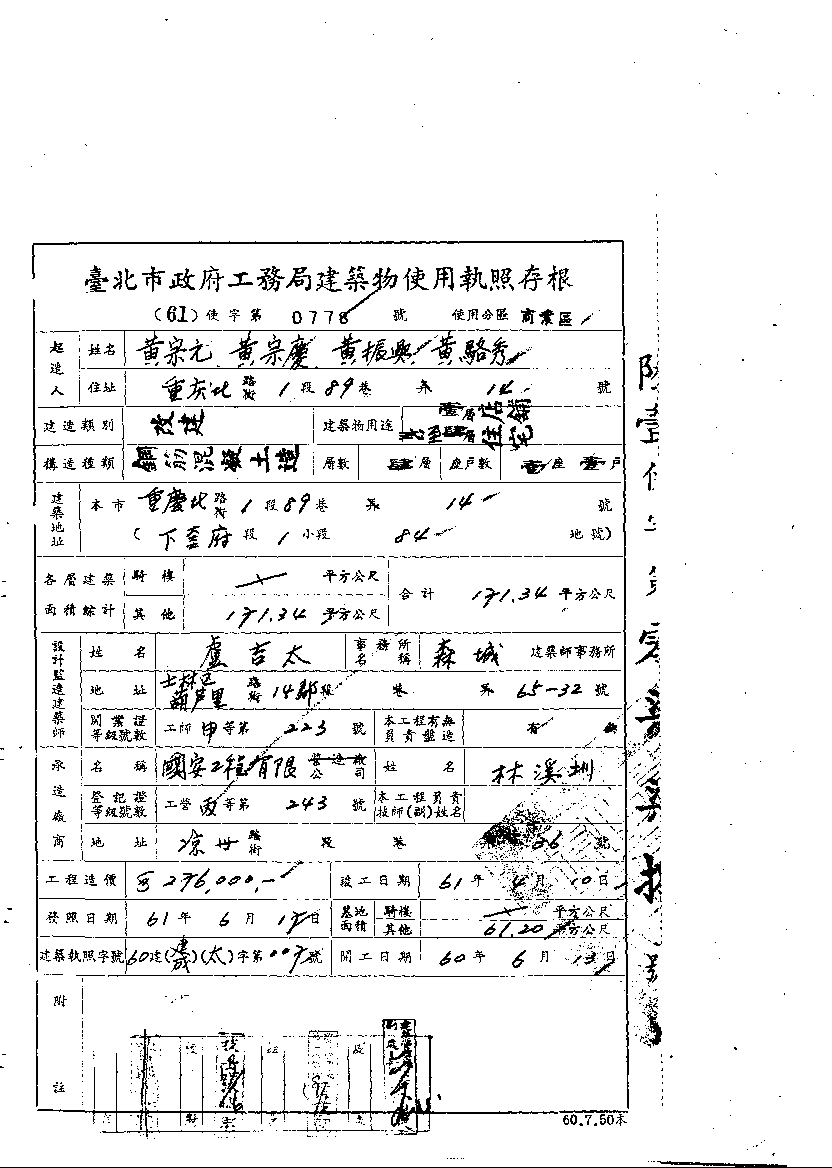 臺北市政府工務局建築物使用執照存根
(61)使字第 0778 號 使用分區 商業區
起造人 姓名 黃宗元 黃宗慶 黃振興 黃駱秀
住址 重慶北 路街 1 段 89 巷 弄 14 號
建造類別 改建 建築物用途 店舖 住宅
構造種類 鋼筋混凝土造 層數 肆層 座戶數 壹座 壹戶
建築地址 本市 重慶北 路街 1 段 89 巷 弄 14 號
(下奎府 段 1 小段 84 地號)
各層建築面積綜計 騎樓 平方公尺 合計 171.34 平方公尺
其他 171.34 平方公尺
設計監造建築師 姓名 盧吉太 事務所名稱 森城 建築師事務所
地址 士林區葫芦里 路街 14鄰 段 巷 弄 65-32 號
開業證等級號數 工師 甲 等第 223 號 本工程有無員責監造 有
承造廠商 名稱 國安工程有限 營造廠公司 姓名 林溪圳
登記證等級號數 工營 丙 等第 243 號 本工程員責技師(副)姓名
地址 涼州 路街 段 巷 36 號
工程造價 276,000,- 竣工日期 61 年 4 月 10 日
發照日期 61 年 6 月 17 日 基地面積 騎樓 平方公尺
其他 61.20 平方公尺
建築執照字號 60建(建成)(太)字第 007 號 開工日期 60 年 6 月 13 日
附註
60.7.50本